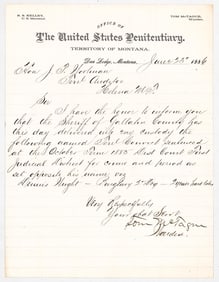 R. S. KELLEY,
U. S. MARSHAL.
TOM McTAGUE,
WARDEN.
OFFICE OF
The United States Penitentiary,
TERRITORY OF MONTANA.
Deer Lodge, Montana, June 25th 1886
Hon J. P. Woolman
Terr Auditor
Helena M.T.
Sir
I have the honor to inform you
that the Sheriff of Gallatin County has
this day delivered into my custody the
following named Terr Convict sentenced
at the October Term 1885 Dist Court First
Judicial District for crime and period as
set opposite his name viz
Dennis Wright - Burglary 2d Deg -
Very Respectfully
Your obdt Servt
Tom McTague
Warden